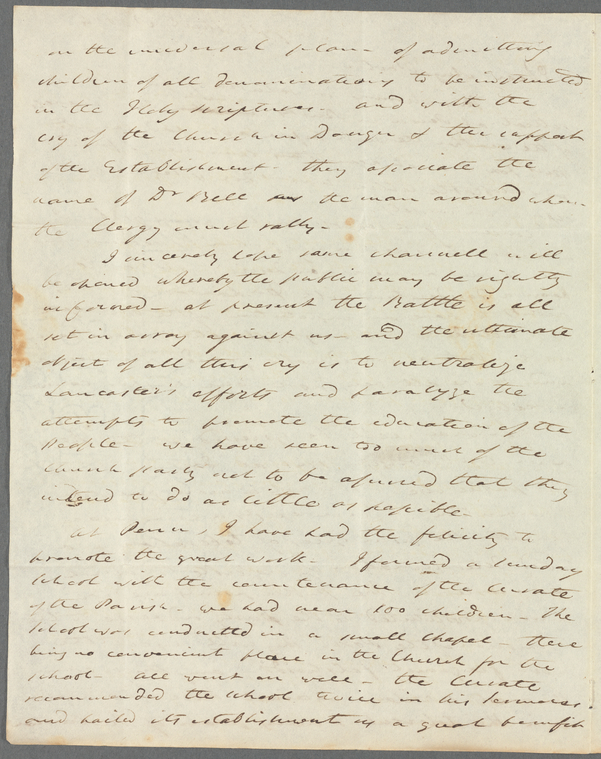 on the universal plan - of admitting
children of all denominations to be instructed
in the Holy Scriptures - and with the
cry of the Church in Danger & the support
of the Establishment they associate the
name of Dr Bell as the man around whom
the Clergy must rally -
I sincerely hope some channell will
be opened whereby the public may be rightly
informed - at present the Battle is all
set in array against us - and the ultimate
object of all this cry is to neutralize
Lancaster's efforts and paralyze the
attempts to promote the education of the
People - we have seen too much of the
Church party not to be assured that they
intend to do as little as possible -
at Penn, I have had the felicity to
promote the great work - I formed a sunday
school with the countenance of the Curate
of the Parish - we had near 100 children - The
school was conducted in a small chapel - there
being no convenient place in the Church for the
school - all went on well - the Curate
recommended the school twice in his sermons
and hailed its establishment as a great benefit